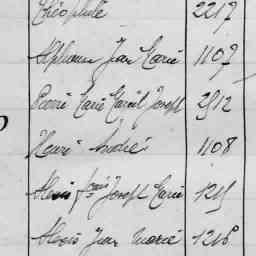 Théophile 2217
Alphonse Jean Marie 1107
Pierre Marie Joseph 2912
Henri André 1108
Alexis Joseph Marie
Alexis Jean Marie 1218